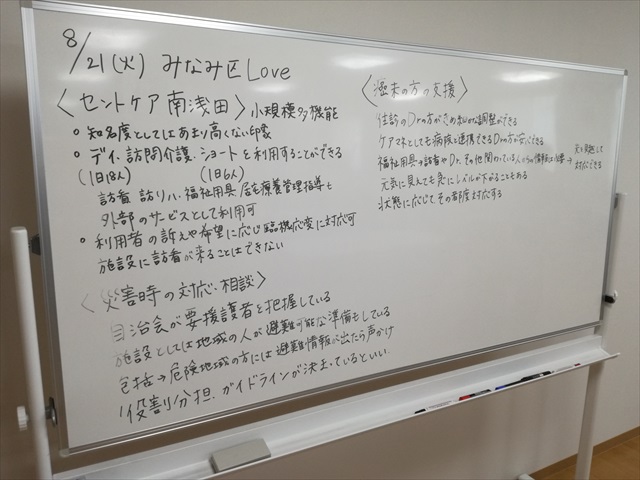 8/21(火) みなみ区Love
〈セントケア南浅田〉小規模多機能
○ 知名度としてはあまり高くない印象
○ デイ、訪問介護、ショートを利用することができる
(1日18人) (1日6人)
訪看、訪リハ、福祉用具、居宅療養管理指導も
外部のサービスとして利用可
○ 利用者の訴えや希望に応じ臨機応変に対応可
施設に訪看が来ることはできない
〈災害時の対応、相談〉
自治会が要援護者を把握している
施設としては地域の人が避難可能な準備もしている
包括→危険地域の方には避難情報が出たら声かけ
役割分担、ガイドラインが決まっているといい
〈極末の方の支援〉
往診のDrの方がきめ細かな調整ができる
ケアマネとしても病院と連携できるDrの方が安心できる
福祉用具→訪看やDr、その他関わっている人からの情報は必要→
対応できる
元気に見えても急にレベルが下がることもある
状態に応じてその都度対応する